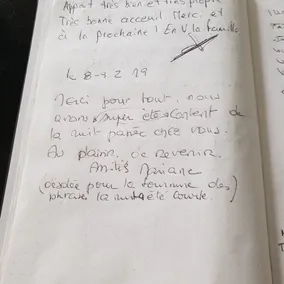 Appart très bon et très propre
Très bonne acceuil Merci et
à la prochaine ! En V la famille
le 8-4 2 19
Merci pour tout, nous
avons super été content de
la nuit passée chez vous.
Au plaisir de revenir.
Amitiés Mariane
(désolée pour la tournure des)
phrases la nuit a été courte.